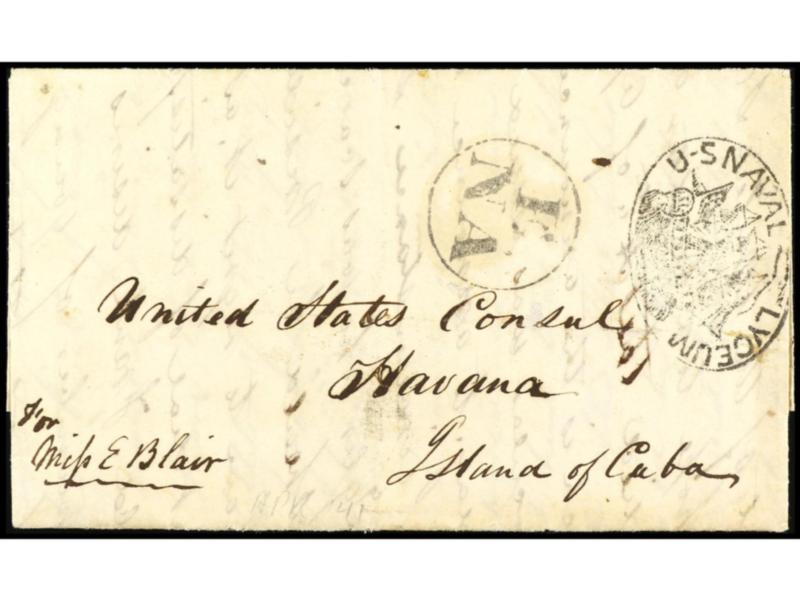 U-S NAVAL LYCEUM
E
NA
United States Consul
Havana
Island of Cuba
For
Miss E Blair